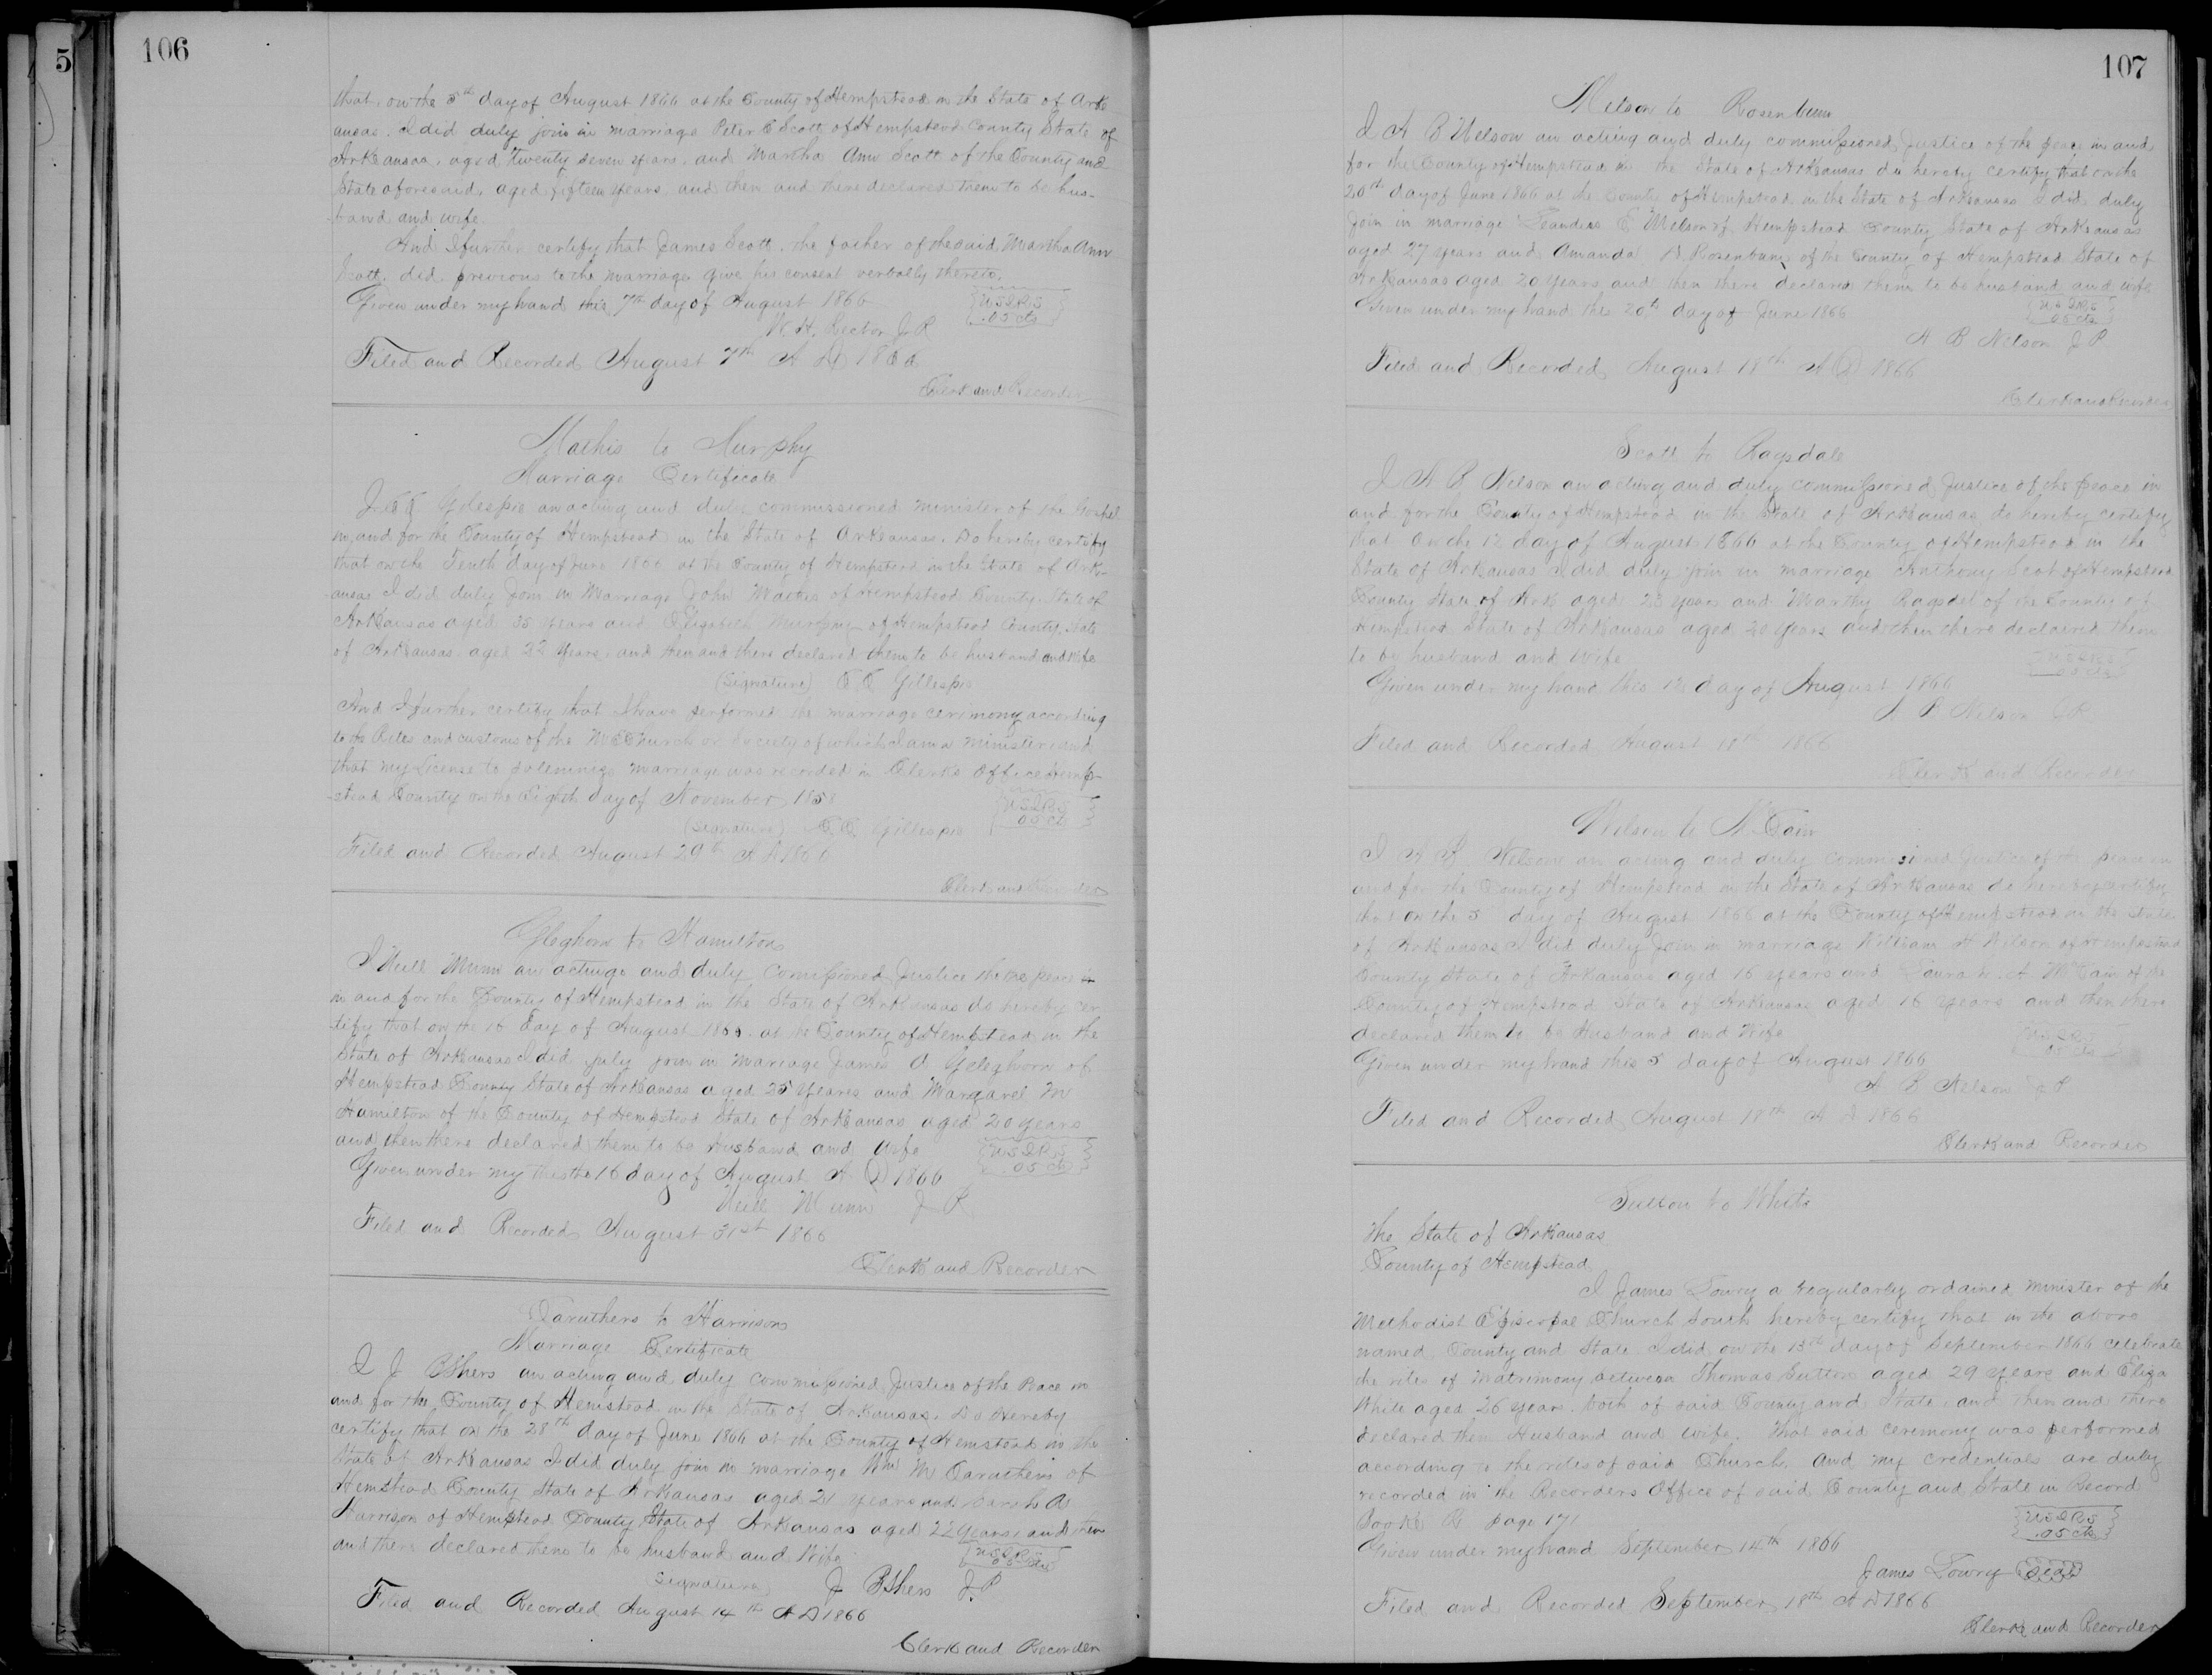 5
106
that, on the 5th day of August 1866 at the County of Hempstead in the State of Ark
ansas. I did duly join in marriage Peter C Scott of Hempstead County State of
Arkansas, aged twenty seven years, and Martha Ann Scott of the County and
State aforesaid, aged fifteen years, and then and there declared them to be hus-
-band and wife.
And I further certify that James Scott, the father of the said Martha Ann
Scott, did, previous to the marriage give his consent verbally thereto.
Given under my hand this 7th day of August 1866
U S I R S
.05 cts
W. H. Rector J P
Filed and Recorded August 7th A D 1866
Clerk and Recorder
Mathis to Murphy
Marriage Certificate
an acting and duly commissioned minister of the Gospel
in and for the County of Hempstead in the State of Arkansas. Do hereby certify
that on the Tenth day of June 1866 at the County of Hempstead in the State of Ark-
-ansas I did duly Join in Marriage John Mathis of Hempstead County State of
Arkansas aged 35 years and Elizabeth Murphy of Hempstead County State
of Arkansas aged 22 Years, and then and there declared them to be husband and wife
(Signature) Gillespie
And I further certify that I have performed the marriage cerimony according
to the Rites and customs of the M E Church or Society of which I am a minister and
that my License to solemnize marriage was recorded in Clerks Office Hemp-
-stead County on the Eighth day of November 1858
U S I R S
05 ct
(Signature) Gillespie
Filed and Recorded August 29th A D 1866
Clerk and Recorder
Gleghorn to Hamilton
I Neill Munn an actinge and duly Comissioned Justice the peace in
in and for the County of Hempstead in the State of Arkansas do hereby cer
tify that on the 16 day of August 1866. at the County of Hempstead in the
State of Arkansas I did july join in mariage James Geleghorn of
Hempstead County State of Arkansas aged 25 Yeares and Margaret M
Hamilton of the County of Hempstead State of Arkansas aged 20 years
and then there declared them to be husband and wife
U S I R S
.05 cts
Given under my this the 16 day of August A D 1866
Neill Munn J P
Filed and Recorded August 31st 1866
Clerk and Recorder
Caruthers to Harrison
Marriage Certificate
I J an acting and duly commissioned Justice of the Peace in
and for the County of Hemstead in the State of Arkansas. Do Hereby
certify that on the 28th day of June 1866 at the County of Hemstead in the
State of Arkansas I did duly join in marriage Wm M Caruthers of
Hemstead County State of Arkansas aged 21 years and Sarah A
Harrison of Hempstead County State of Arkansas aged 22 years, and then
and there declared them to be husband and Wife
U S I R S
05 cts
Signature J P
Filed and Recorded August 14th A D 1866
Clerk and Recorder
107
Nelson to Rosenbum
I A B Nelson an acting and duly commissioned Justice of the peace in and
for the County of Hempstead in the State of Arkansas do hereby certify that on the
20th day of June 1866 at the County of Hempstead in the State of Arkansas I did duly
Join in marriage E Nelson of Hempstead County State of Arkansas
aged 27 years and Amanda Rosenbum of the County of Hempstead State of
Arkansas aged 20 Years and then there declared them to be husband and wife
Given under my hand this 20th day of June 1866
U S I R S
05 cts
A B Nelson J P
Filed and Recorded August 18th A D 1866
Clerk and Recorder
Scott to Ragsdale
I A B Nelson an acting and duly commissioned Justice of the peace in
and for the County of Hempstead in the State of Arkansas do hereby certify
that on the 12 day of August 1866 at the County of Hempstead in the
State of Arkansas I did duly join in marriage Anthony Scot of Hempstead
County State of Ark aged 23 years and Marthy Ragsdel of the County of
Hempstead State of Arkansas aged 20 years and then there declaired them
to be husband and wife
U S I R S
05 cts
Given under my hand this 12 day of August 1866
A B Nelson J P
Filed and Recorded August 18th 1866
Clerk and Recorder
Nelson to McCain
I A B Nelson an acting and duly commissioned Justice of the peace in
and for the County of Hempstead in the State of Arkansas do hereby certify
that on the 5 day of August 1866 at the County of Hempstead in the State
of Arkansas I did duly Join in marriage William H Nelson of Hempstead
County State of Arkansas aged 16 years and Sarah A McCain of the
County of Hempstead State of Arkansas aged 16 years and then there
declared them to be Husband and Wife
U S I R S
05 cts
Given under my hand this 5 day of August 1866
A B Nelson J P
Filed and Recorded August 18th A D 1866
Clerk and Recorder
Sutton to White
The State of Arkansas
County of Hempstead
I James Lowry a regularly ordained minister of the
Methodist Episcopal Church South hereby certify that in the above
named County and State I did on the 13th day of September 1866 celebrate
the rites of Matrimony between Thomas Sutton aged 29 years and Eliza
White aged 26 years. both of said County and State, and then and there
declared them Husband and wife. That said ceremony was performed
according to the rites of said Church. and my credentials are duly
recorded in the Recorders Office of said County and State in Record
Book page 171
U S I R S
.05 cts
Given under my hand September 14th 1866
James Lowry Seal
Filed and Recorded September 18th A D 1866
Clerk and Recorder